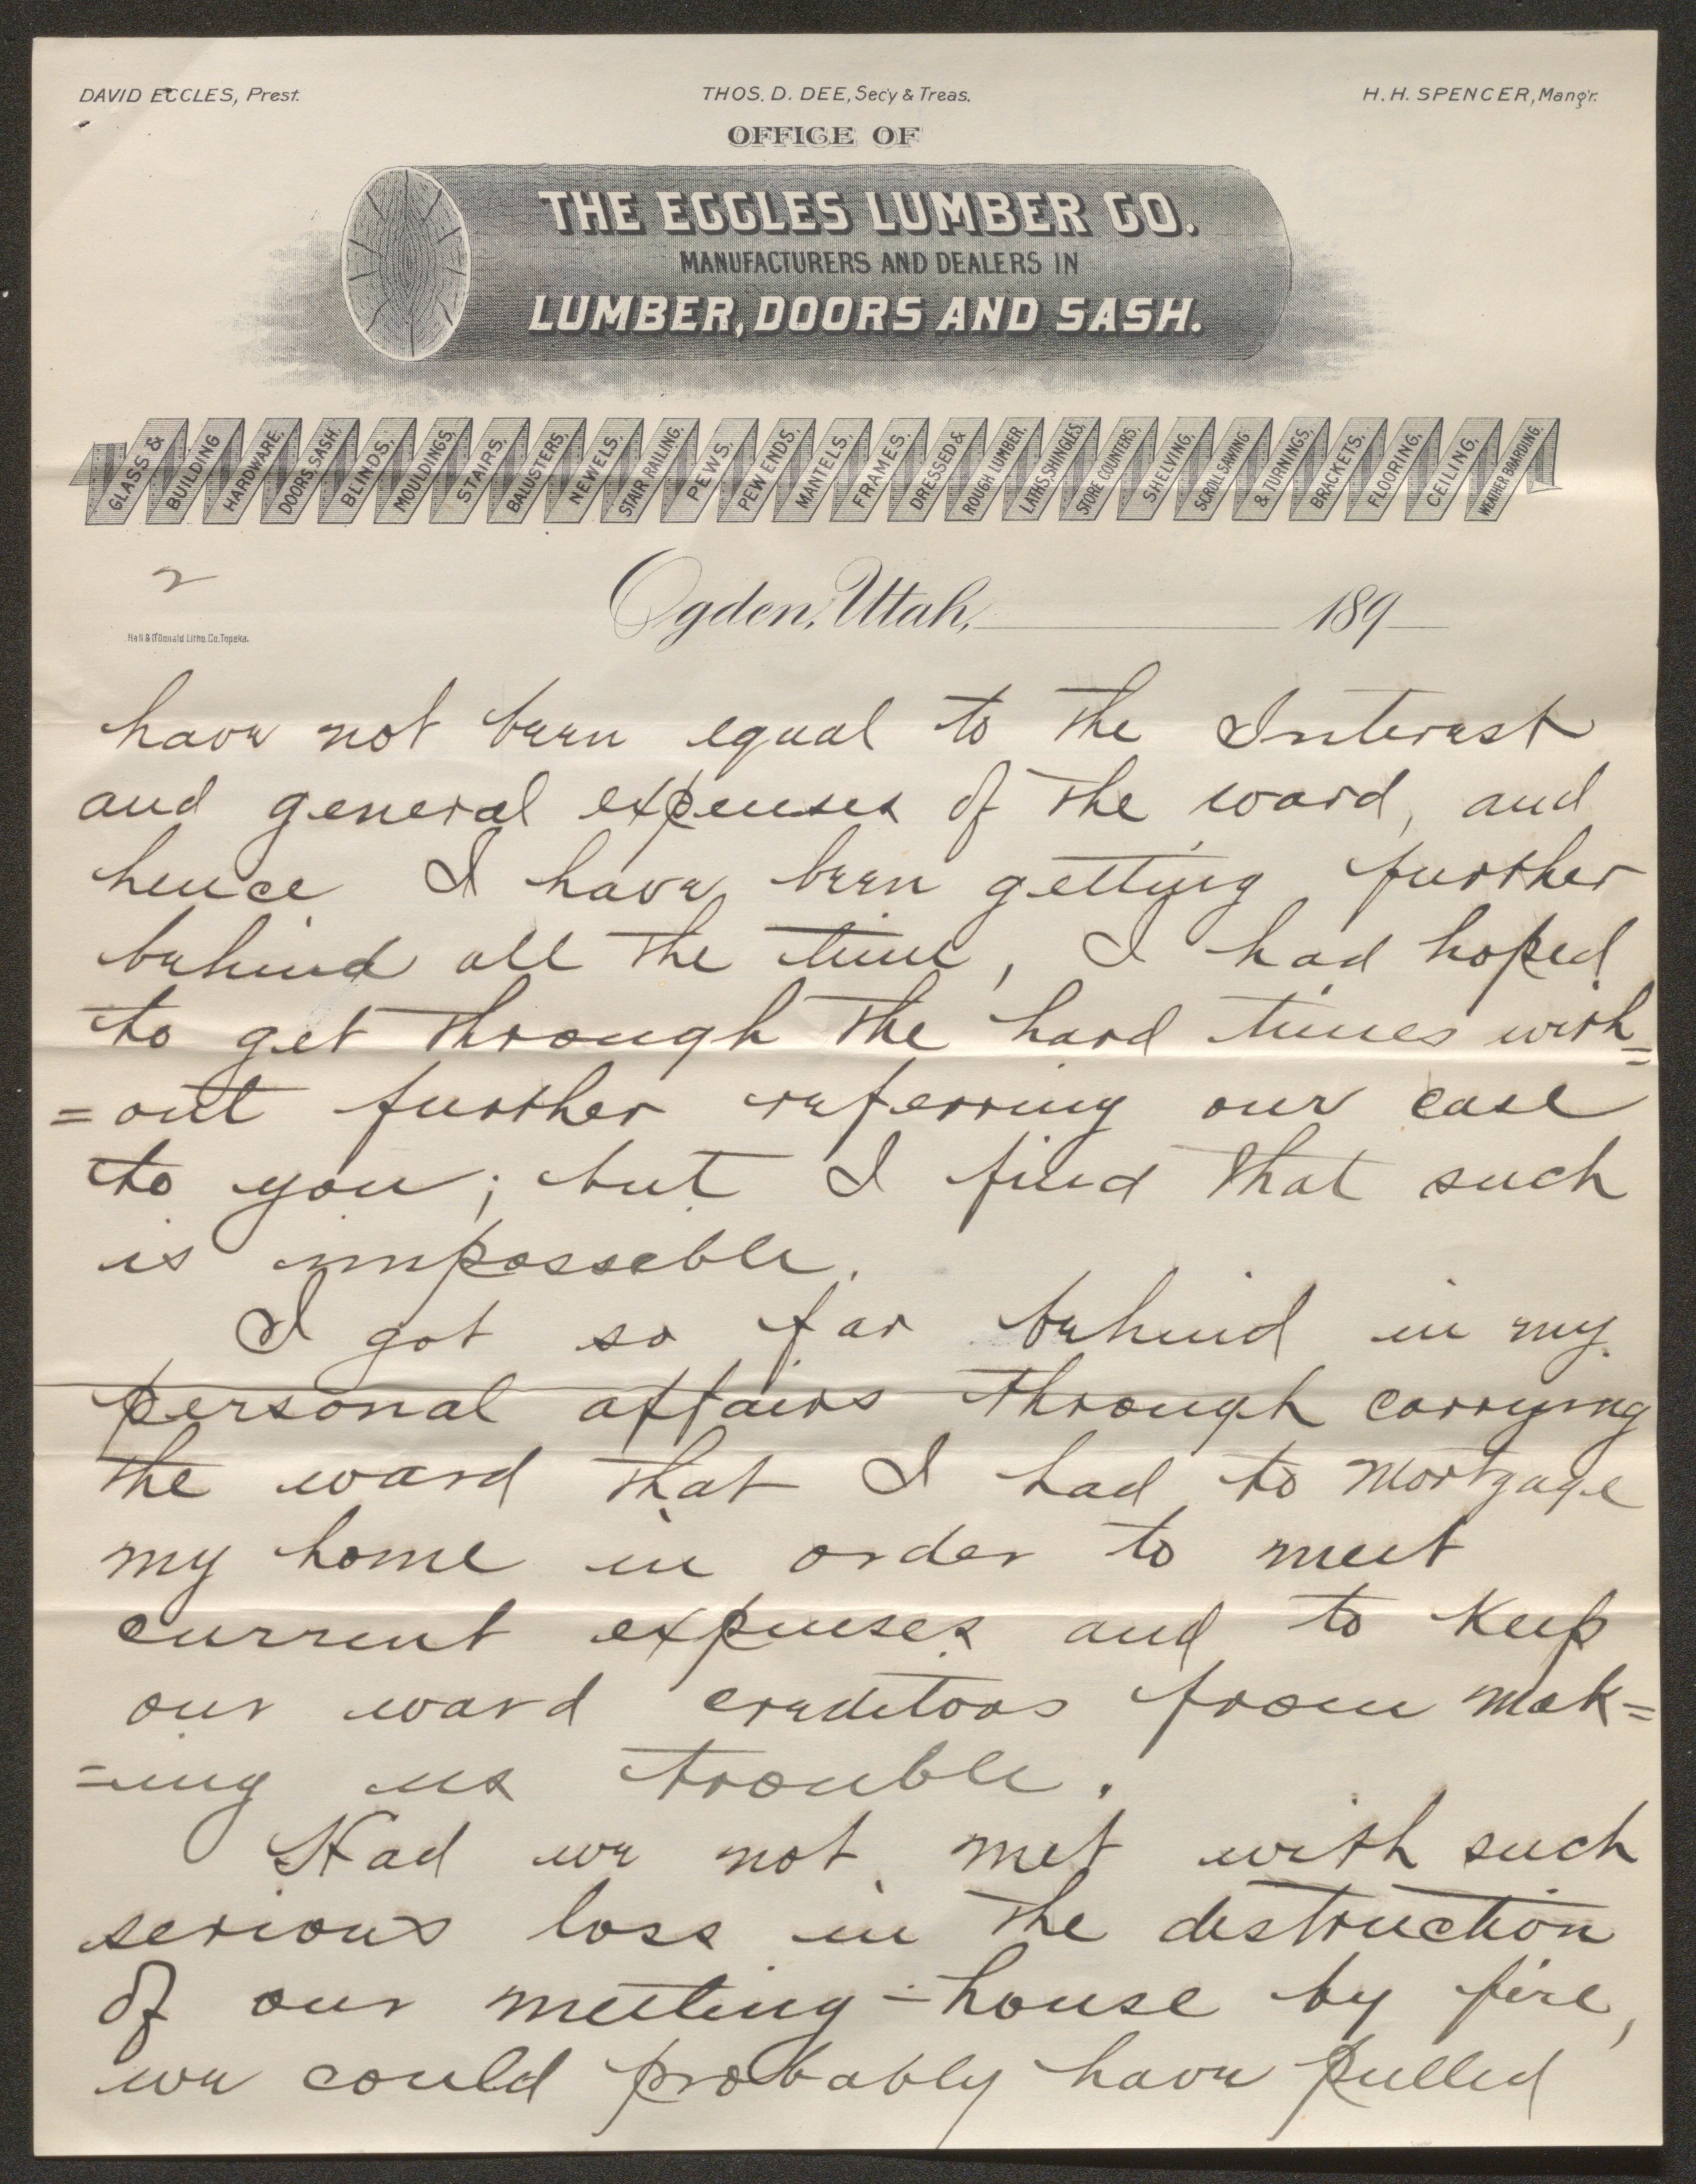 DAVID ECCLES, Prest. THOS. D. DEE, Sec'y & Treas. H. H. SPENCER, Mang'r.
OFFICE OF
THE ECCLES LUMBER CO.
MANUFACTURERS AND DEALERS IN
LUMBER, DOORS AND SASH.
GLASS & BUILDING HARDWARE. DOORS. SASH. BLINDS. MOULDINGS. STAIRS. BALUSTERS. NEWELS. STAIR RAILING. PEWS. PEW ENDS. MANTELS. FRAMES. DRESSED & ROUGH LUMBER. LATHS. SHINGLES. STORE COUNTERS. SHELVING. SCROLL SAWING & TURNINGS. BRACKETS. FLOORING. CEILING. WEATHER BOARDING.
2
Ogden, Utah, 189
Hall & O'Donald Litho. Co. Topeka.
have not been equal to the Interest
and general expenses of the ward, and
hence I have been getting further
behind all the time, I had hoped
to get through the hard times with=
=out further referring our case
to you; but I find that such
is impossible.
I got so far behind in my
personal affairs through carrying
the ward that I had to mortgage
my home in order to meet
current expenses and to keep
our ward creditors from mak=
=ing us trouble.
Had we not met with such
serious loss in the destruction
of our meeting-house by fire,
we could probably have pulled